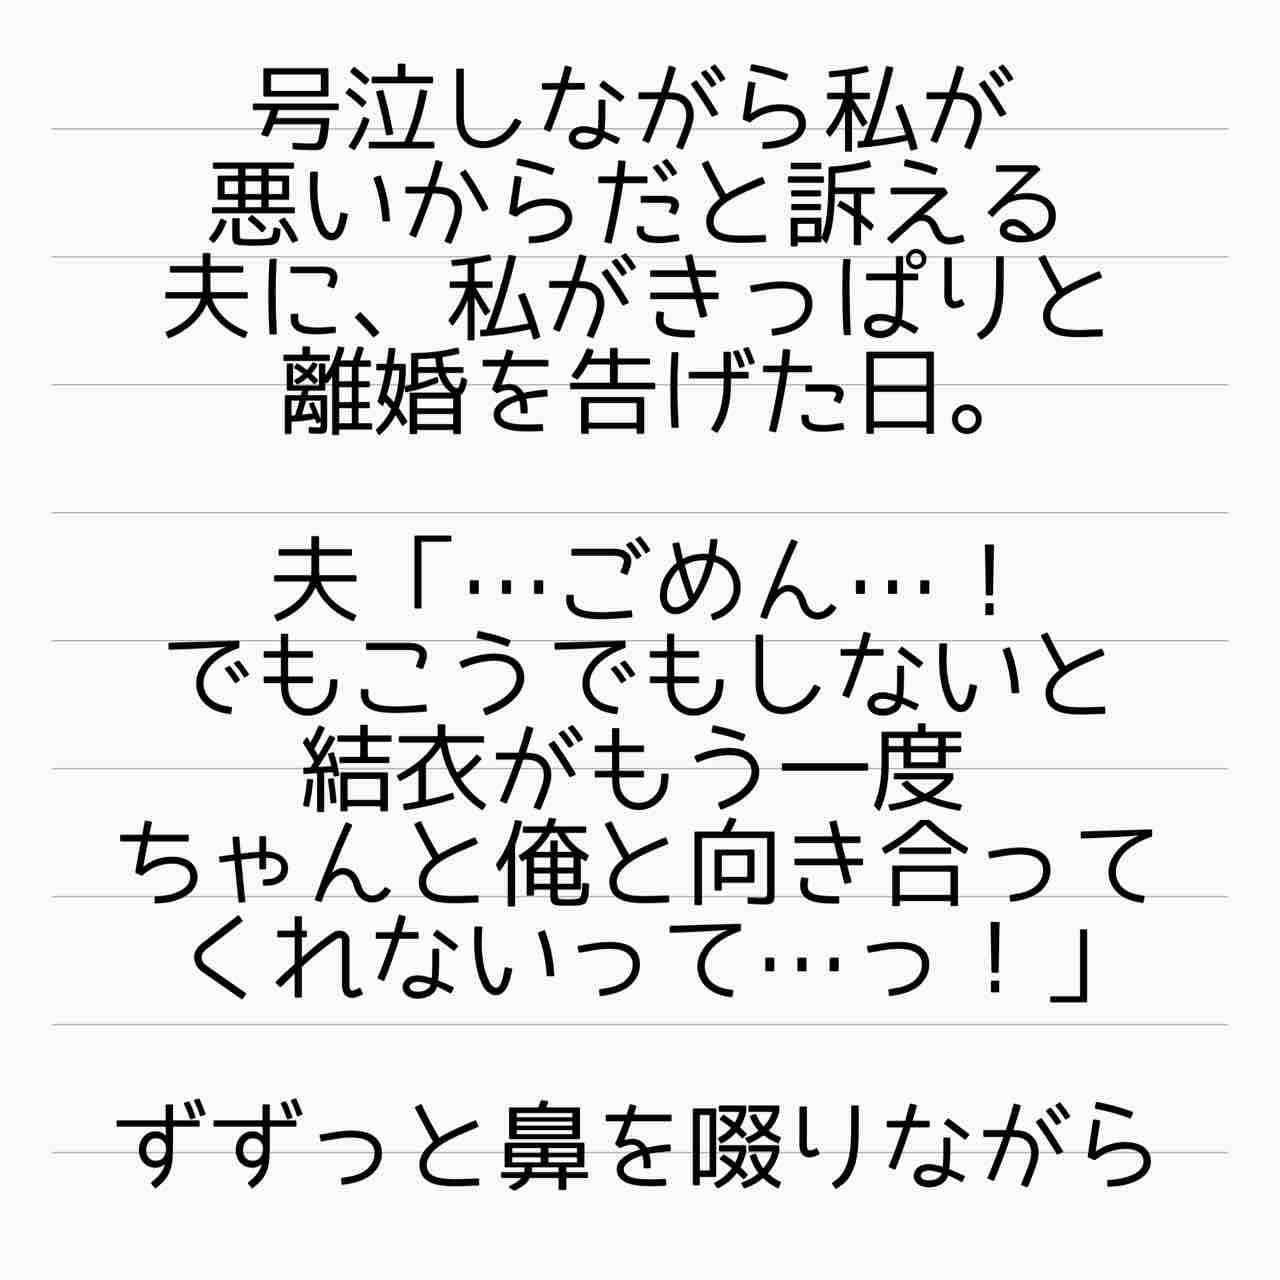 号泣しながら私が
悪いからだと訴える
夫に、私がきっぱりと
離婚を告げた日。
夫「…ごめん…！
でもこうでもしないと
結衣がもう一度
ちゃんと俺と向き合って
くれないって…っ！」
ずずっと鼻を啜りながら